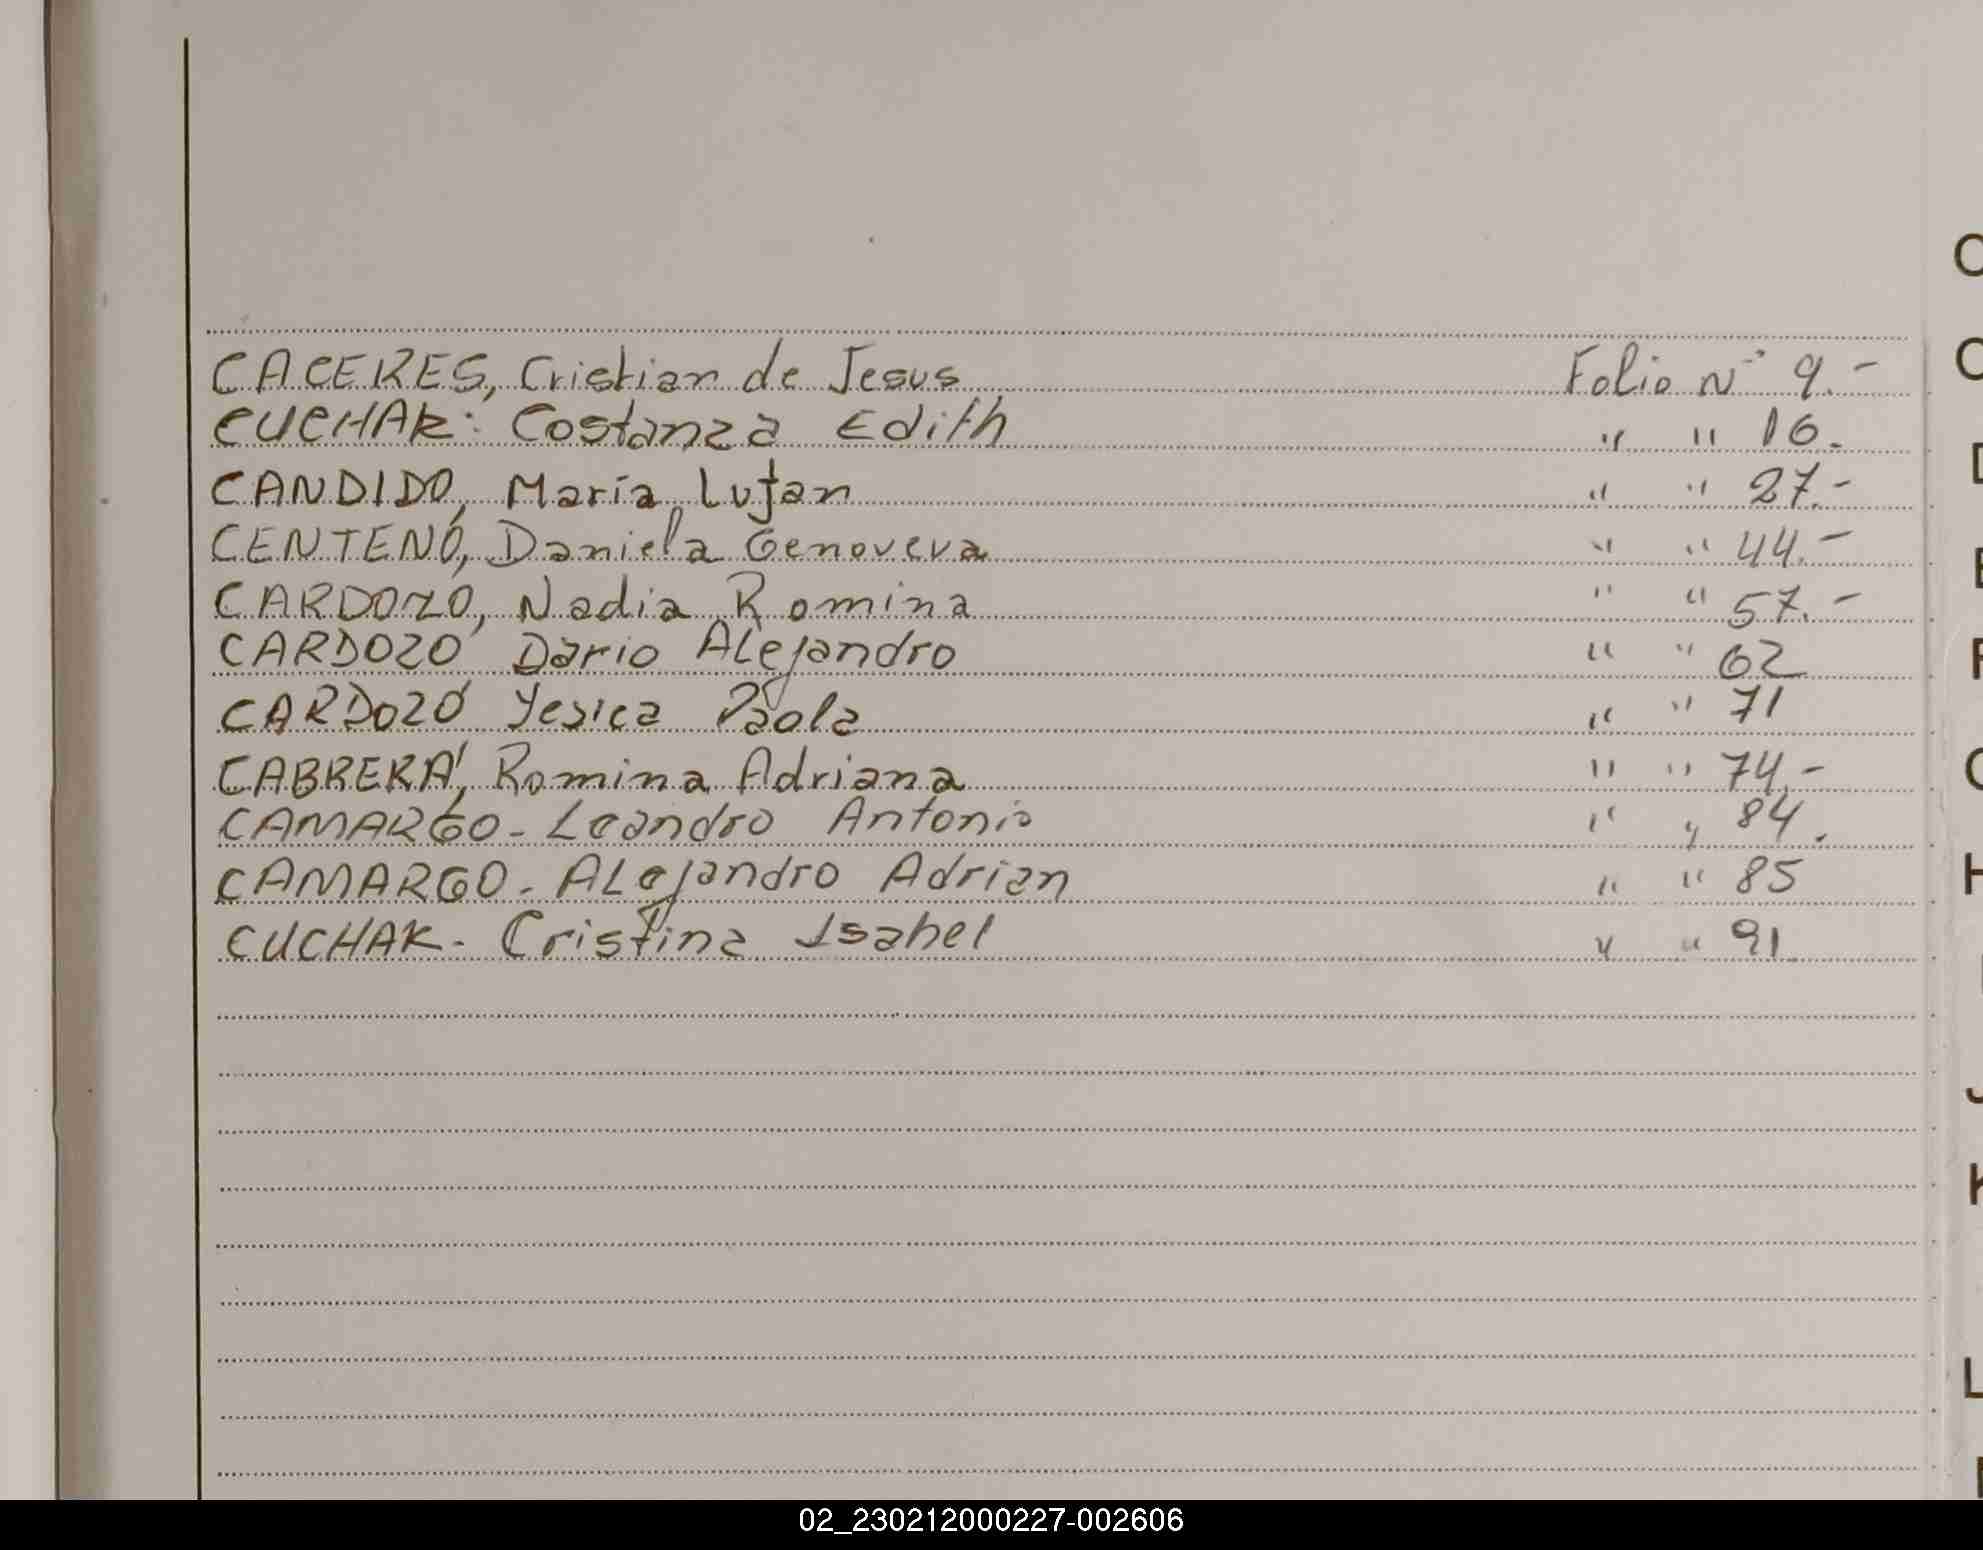 CACERES, Cristian de Jesus Folio N° 9.-
CUCHAK: Costanza Edith " " 16.
CANDIDO, María Lujan " " 27.-
CENTENO, Daniela Genoveva " " 44.-
CARDOZO, Nadia Romina " " 57.-
CARDOZO Dario ALejandro " " 62
CARDOZO Yesica Paola " " 71
CABRERA, Romina Adriana " " 74.-
CAMARGO - Leandro Antonio " " 84.
CAMARGO - ALejandro Adrian " " 85
CUCHAK - Cristina Isabel " " 91
C
C
D
E
F
G
H
I
J
K
L
02_230212000227-002606